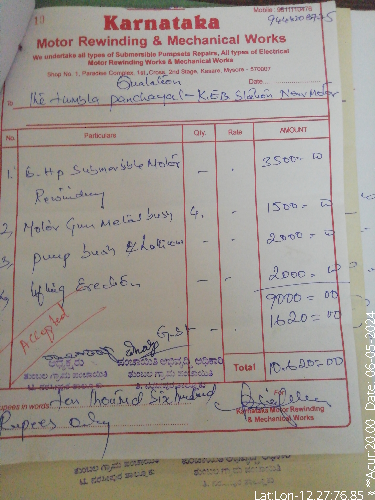 10
Karnataka
Motor Rewinding & Mechanical Works
We undertake all types of Submersible Pumpsets Repairs, All types of Electrical
Motor Rewinding Works & Mechanical Works
Shop No. 1, Paradise Complex, 1st Cross, 2nd Stage, Kesare, Mysore - 570007
Quatation
Date
To
No.
Particulars
Qty.
Rate
AMOUNT
1. 6. Hp Submersible Motor - - 3500=00
Rewinding
2, Motor Gun Metal bush 4. - 1500=00
3, pump bush - - 2000=00
4, lifting Erection - - 2000=00
9000=00
GST - 1620=00
Accepted
ಅಧ್ಯಕ್ಷರು
ಪಂಚಾಯಿತಿ ಅಭಿವೃದ್ಧಿ ಅಧಿಕಾರಿ
ತುಂಬಲ ಗ್ರಾಮ ಪಂಚಾಯಿತಿ
Total
10.620=00
Rupees in words
Ten thousand Six hundred
Rupees only
Karnataka Motor Rewinding
& Mechanical Works
Date, 06-05-2024